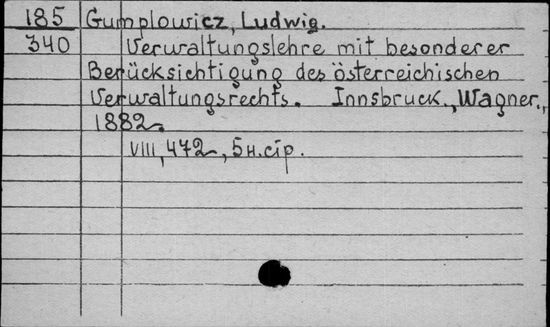 185 Gumplowicz, Ludwig.
340 Verwaltungslehre mit besonderer
Berücksichtigung des österreichischen
Verwaltungsrechts. Innsbruck, Wagner.,
1882.
VIII, 472,